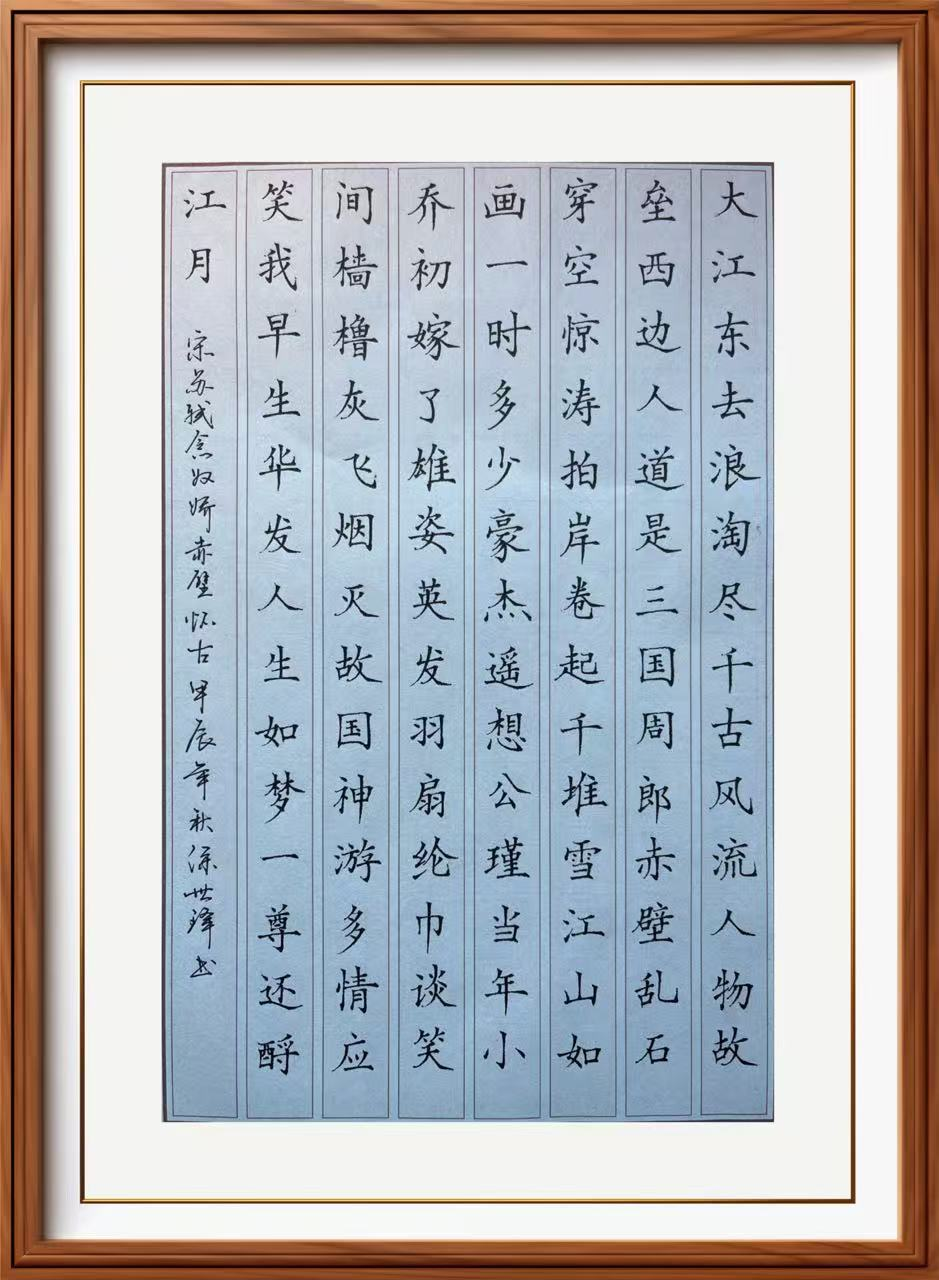 大江东去浪淘尽千古风流人物故
垒西边人道是三国周郎赤壁乱石
穿空惊涛拍岸卷起千堆雪江山如
画一时多少豪杰遥想公瑾当年小
乔初嫁了雄姿英发羽扇纶巾谈笑
间樯橹灰飞烟灭故国神游多情应
笑我早生华发人生如梦一尊还酹
江月
宋苏轼念奴娇赤壁怀古甲辰年秋徐世锋书